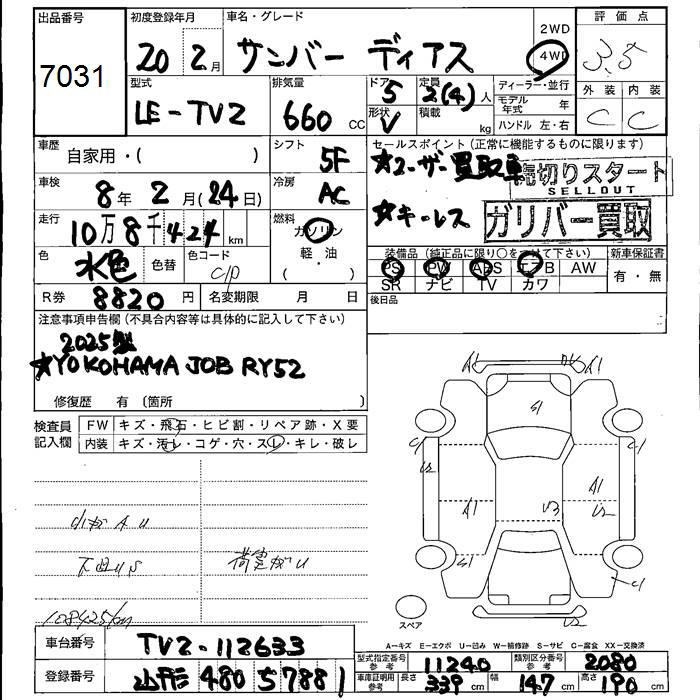 出品番号 7031
初度登録年月 20 2月
車名・グレード サンバー ディアス
2WD
4WD
評価点 3.5
外装 内装
C C
型式 LE-TV2
排気量 660 cc
ドア 5
形状 V
定員 2(4)人
積載 kg
ディーラー・並行
モデル年式 年
ハンドル 左・右
車歴 自家用・( )
シフト 5F
セールスポイント (正常に機能するものに限ります)
★ユーザー買取車
売切りスタート
SELLOUT
★キーレス
ガリバー買取
車検 8年 2月(24日)
冷房 AC
走行 10万8千424km
燃料 ガソリン
軽・油
( )
色 水色 色替
色コード c/p
装備品 (純正品に限り○をつけて下さい)
新車保証書
PS PW ABS エアB AW
SR ナビ TV カワ
有・無
R券 8820円
名変期限 月 日
後日品
注意事項申告欄 (不具合内容等は具体的に記入して下さい)
2025製
★YOKOHAMA JOB RY52
修復歴 有 (箇所 )
検査員記入欄
FW キズ・飛石・ヒビ割・リペア跡・X要
内装 キズ・汚レ・コゲ・穴・スレ・キレ・破レ
小キズAU
下回りS
荷室キズU
108425km
A1 A1
S1
C1 C1
U2
A1 A1
U3 U2
S1
C1
U2
スペア
A=キズ E=エクボ U=凹み W=補修跡 S=サビ C=腐食 XX=交換済
車台番号 TV2-112633
登録番号 山形 480 う 7881
型式指定番号 参考 11240
類別区分番号 参考 2080
車庫証明用 参考
長さ 339cm
幅 147cm
高さ 190cm